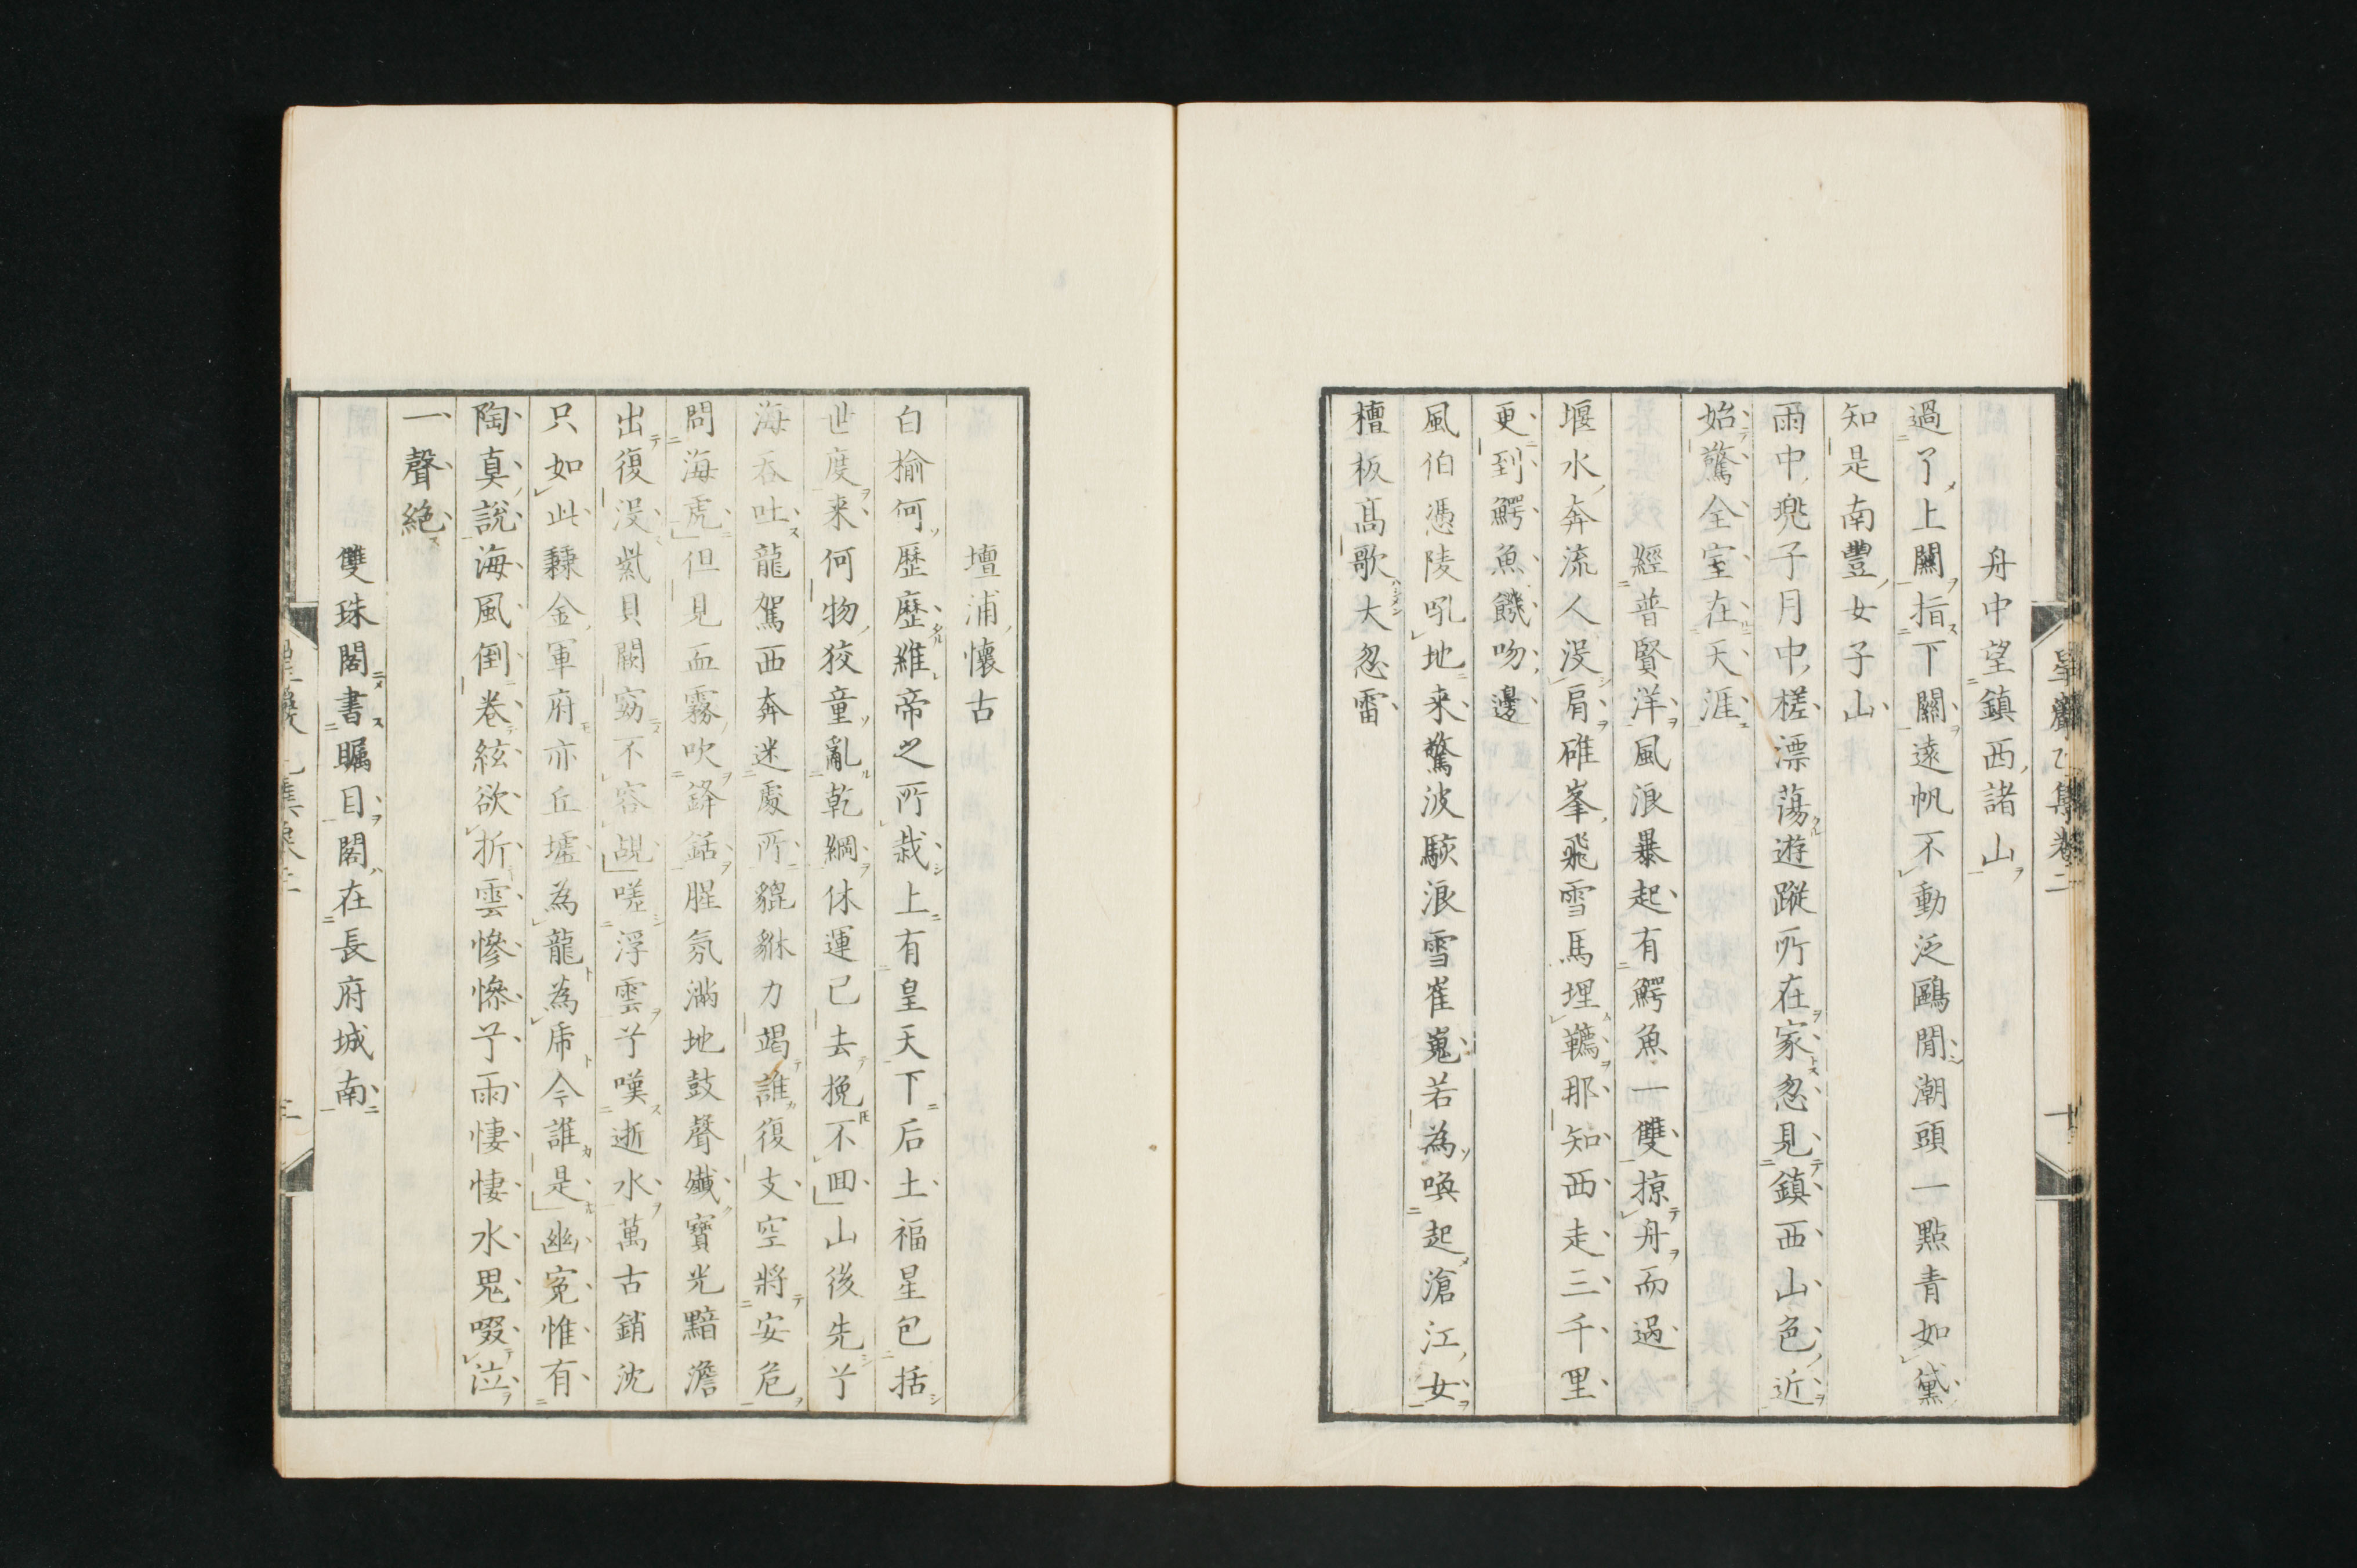 舟中望鎮西諸山
過了上關指下關遠帆不動泛鷗閒潮頭一點青如黛
知是南豐女子山
雨中兜子月中槎漂蕩遊蹤所在家忽見鎮西山色近
始驚全室在天涯
經普賢洋風浪暴起有鰐魚一雙掠舟而過
堰水奔流人没肩碓峯飛雪馬埋韉那知西走三千里
更到鰐魚饑吻邊
風伯憑陵吼地来驚波駭浪雪崔嵬若為喚起滄江女
檀板高歌大忽雷
壇浦懷古
白榆何歷歷維帝之所栽上有皇天下后土福星包括
世度来何物狡童亂乾綱休運已去挽不回山後先兮
海吞吐龍駕西奔迷處所貔貅力竭誰復支空將安危
問海虎但見血霧吹鋒銛腥氛滿地鼓聲殲寶光黯澹
出復没紫貝闕窈不容覘嗟浮雲兮嘆逝水萬古銷沈
只如此隸金軍府亦丘墟為龍為乕今誰是幽寃惟有
陶真說海風倒卷絃欲折雲慘慘兮雨悽悽水鬼啜泣
一聲絕
雙珠閣書矚目閣在長府城南